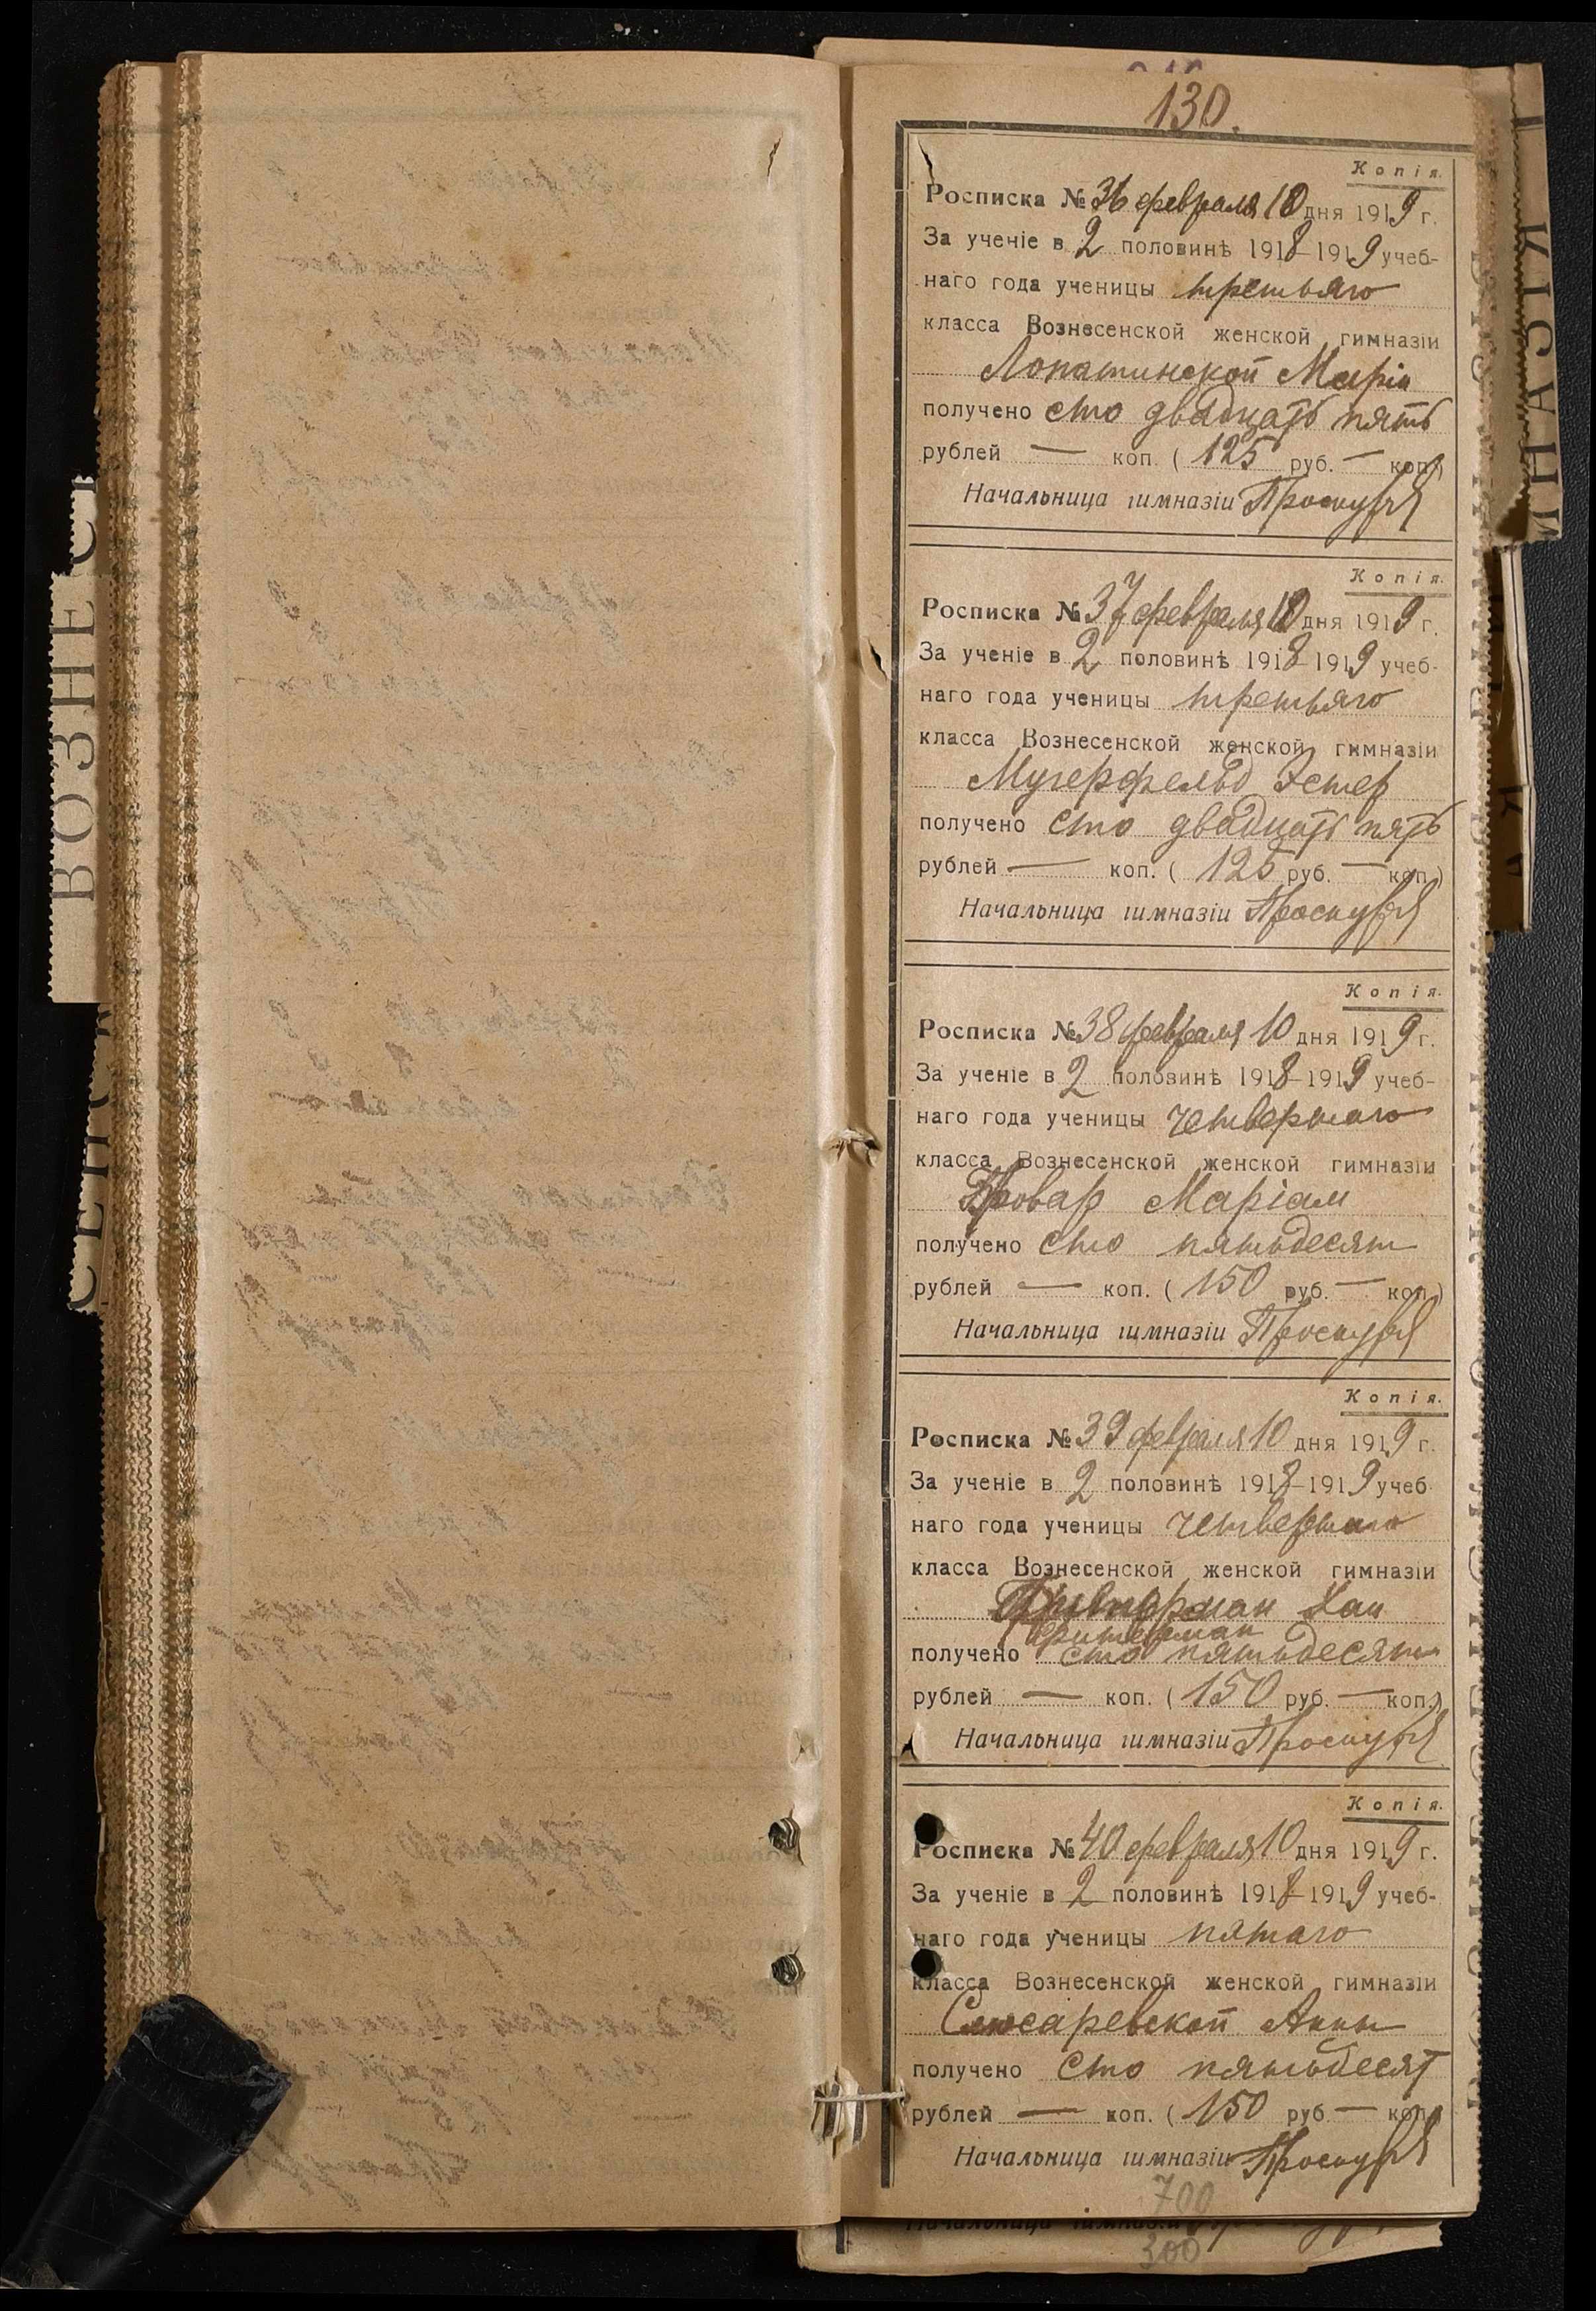 130.
Копія.
Росписка № 36 февраля 10 дня 1919 г.
За ученіе в 2 половинѣ 1918-1919 учеб-
наго года ученицы третьяго
класса Вознесенской женской гимназіи
Лопатинской Маріи
получено сто двадцать пять
рублей — коп. (125 руб. — коп.)
Начальница гимназіи
Копія.
Росписка № 37 февраля 10 дня 1919 г.
За ученіе в 2 половинѣ 1918-1919 учеб-
наго года ученицы третьяго
класса Вознесенской женской гимназіи
Мучерфельд Эстер
получено сто двадцать пять
рублей — коп. (125 руб. — коп.)
Начальница гимназіи
Копія.
Росписка № 38 февраля 10 дня 1919 г.
За ученіе в 2 половинѣ 1918-1919 учеб-
наго года ученицы четвертаго
класса Вознесенской женской гимназіи
Маріам
получено сто пятьдесят
рублей — коп. (150 руб. — коп.)
Начальница гимназіи
Копія.
Росписка № 39 февраля 10 дня 1919 г.
За ученіе в 2 половинѣ 1918-1919 учеб
наго года ученицы четвертаго
класса Вознесенской женской гимназіи
Хаи
получено сто пятьдесят
рублей — коп. (150 руб. — коп.)
Начальница гимназіи
Копія.
Росписка № 40 февраля 10 дня 1919 г.
За ученіе в 2 половинѣ 1918-1919 учеб-
наго года ученицы пятаго
класса Вознесенской женской гимназіи
Слюсаревской Анны
получено сто пятьдесят
рублей — коп. (150 руб — коп.)
Начальница гимназіи
700
Начальница гимназіи
300
ВОЗНЕС